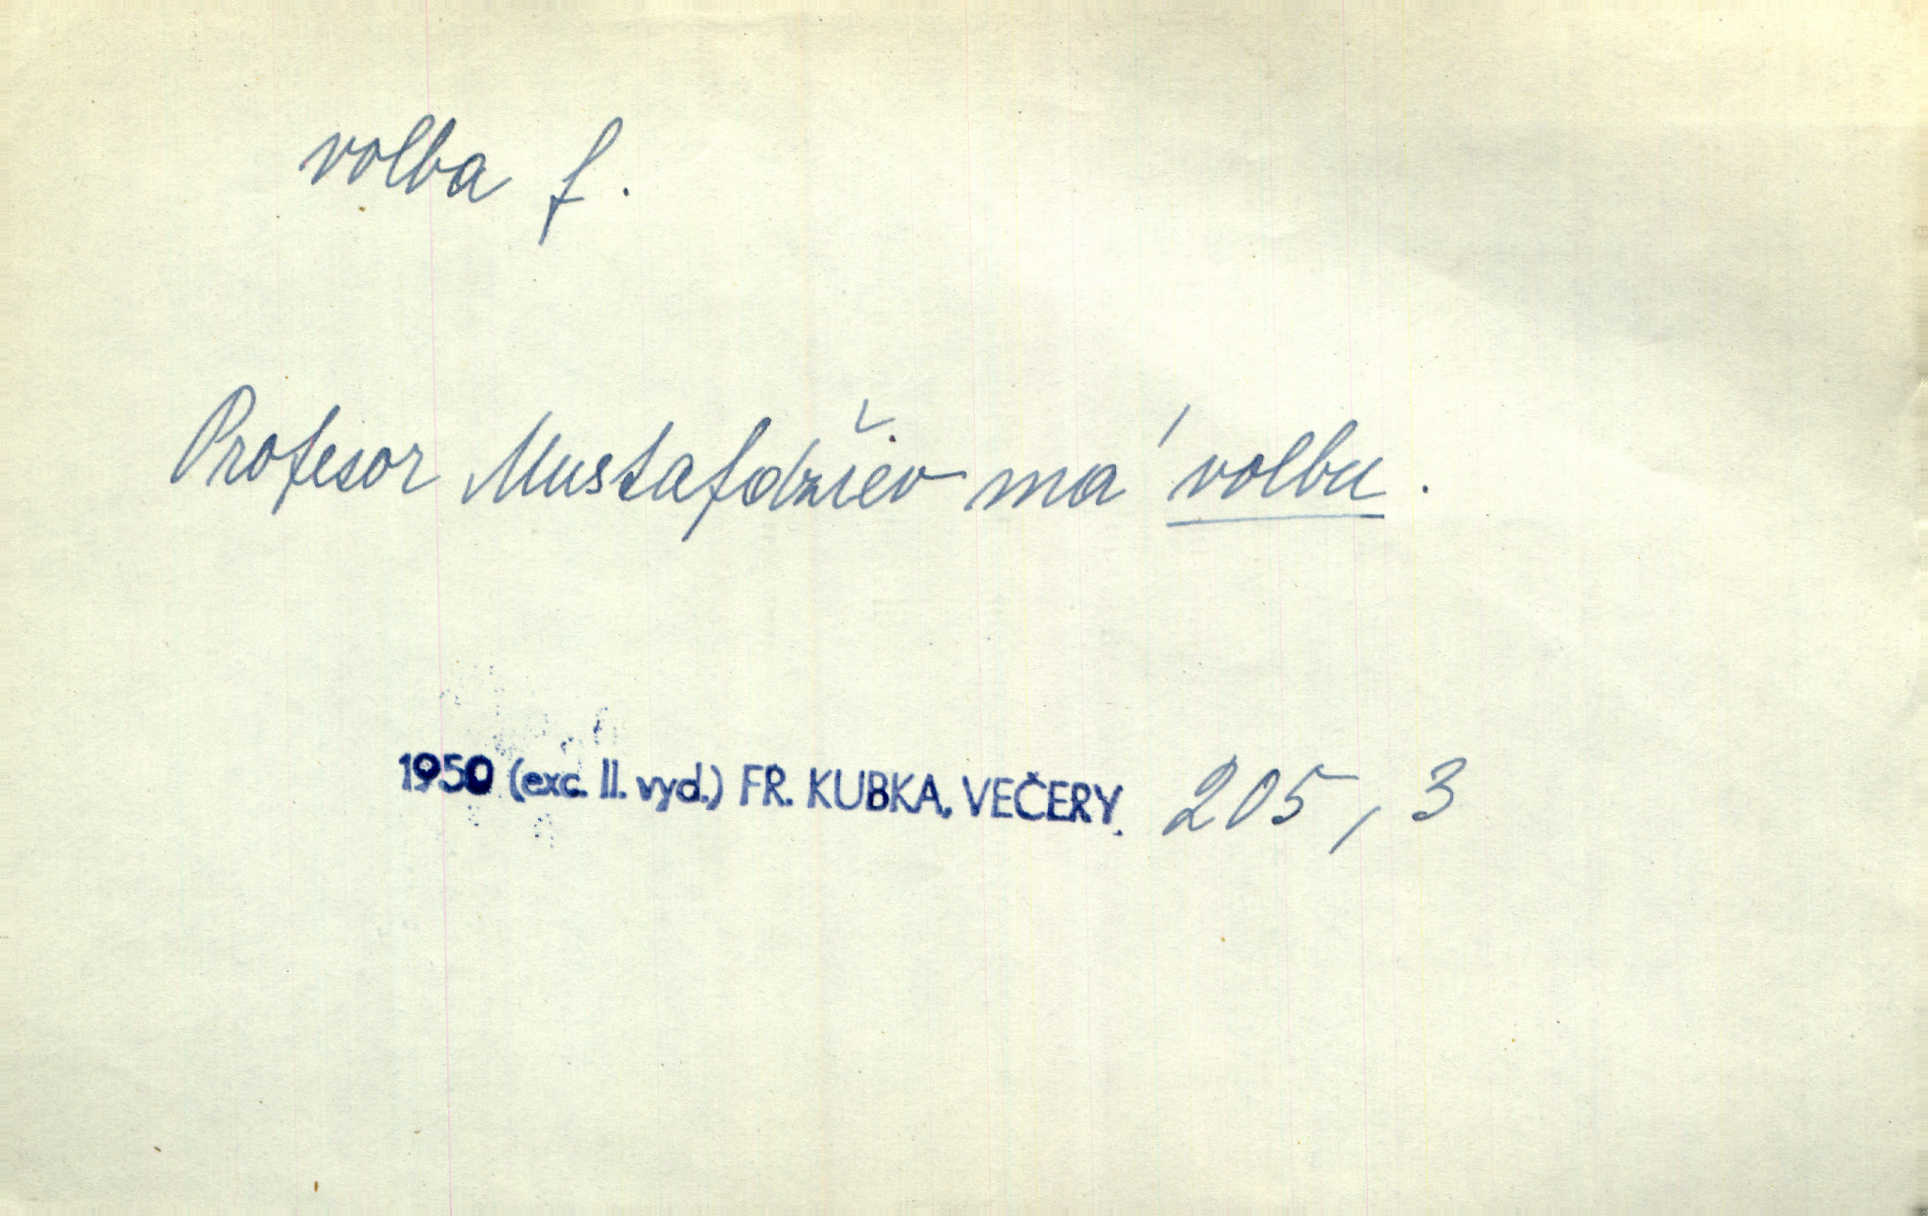 volba f.
Profesor Mustafdžiev má volbu.
1950 (exc. II. vyd.) FR. KUBKA, VEČERY. 205, 3